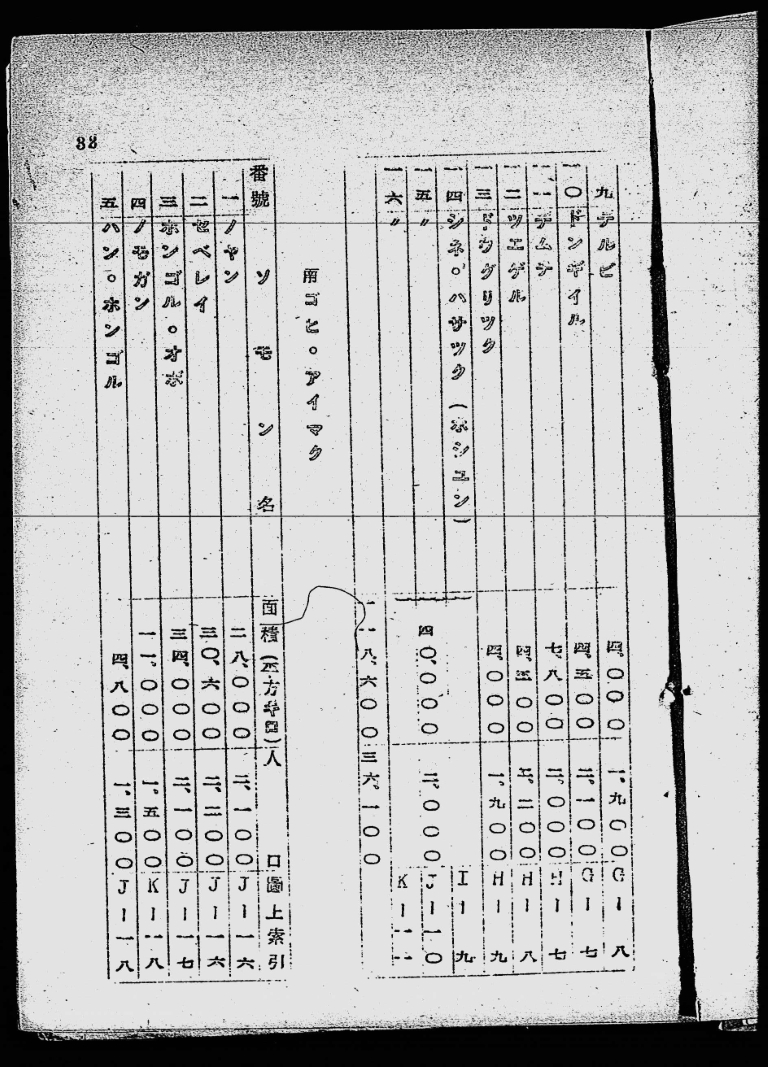 九 テルビ 四、〇〇〇 一、九〇〇 G－八
一〇 ドンギイル 四、五〇〇 二、一〇〇 G－七
一一 チムチ 七、八〇〇 二、〇〇〇 H－七
一二 ツエゲル 四、三〇〇 二、二〇〇 H－八
一三 ドウグリツク 四、〇〇〇 一、九〇〇 H－九
一四 シネ・ハサツク（ホシユン） I－九
一五 〃 四〇、〇〇〇 二、〇〇〇 J－一〇
一六 〃 K－一一
一一八、六〇〇 三六、一〇〇
南ゴビ・アイマク
番號 ソモン名 面積（平方キロ） 人口 圖上索引
一 ノヤン 二八、〇〇〇 二、一〇〇 J－一六
二 セベレイ 三〇、六〇〇 二、二〇〇 J－一六
三 ホンゴル・オボ 三四、〇〇〇 二、一〇〇 J－一七
四 ノモガン 一一、〇〇〇 一、五〇〇 K－一八
五 ハン・ホンゴル 四、八〇〇 一、三〇〇 J－一八
38